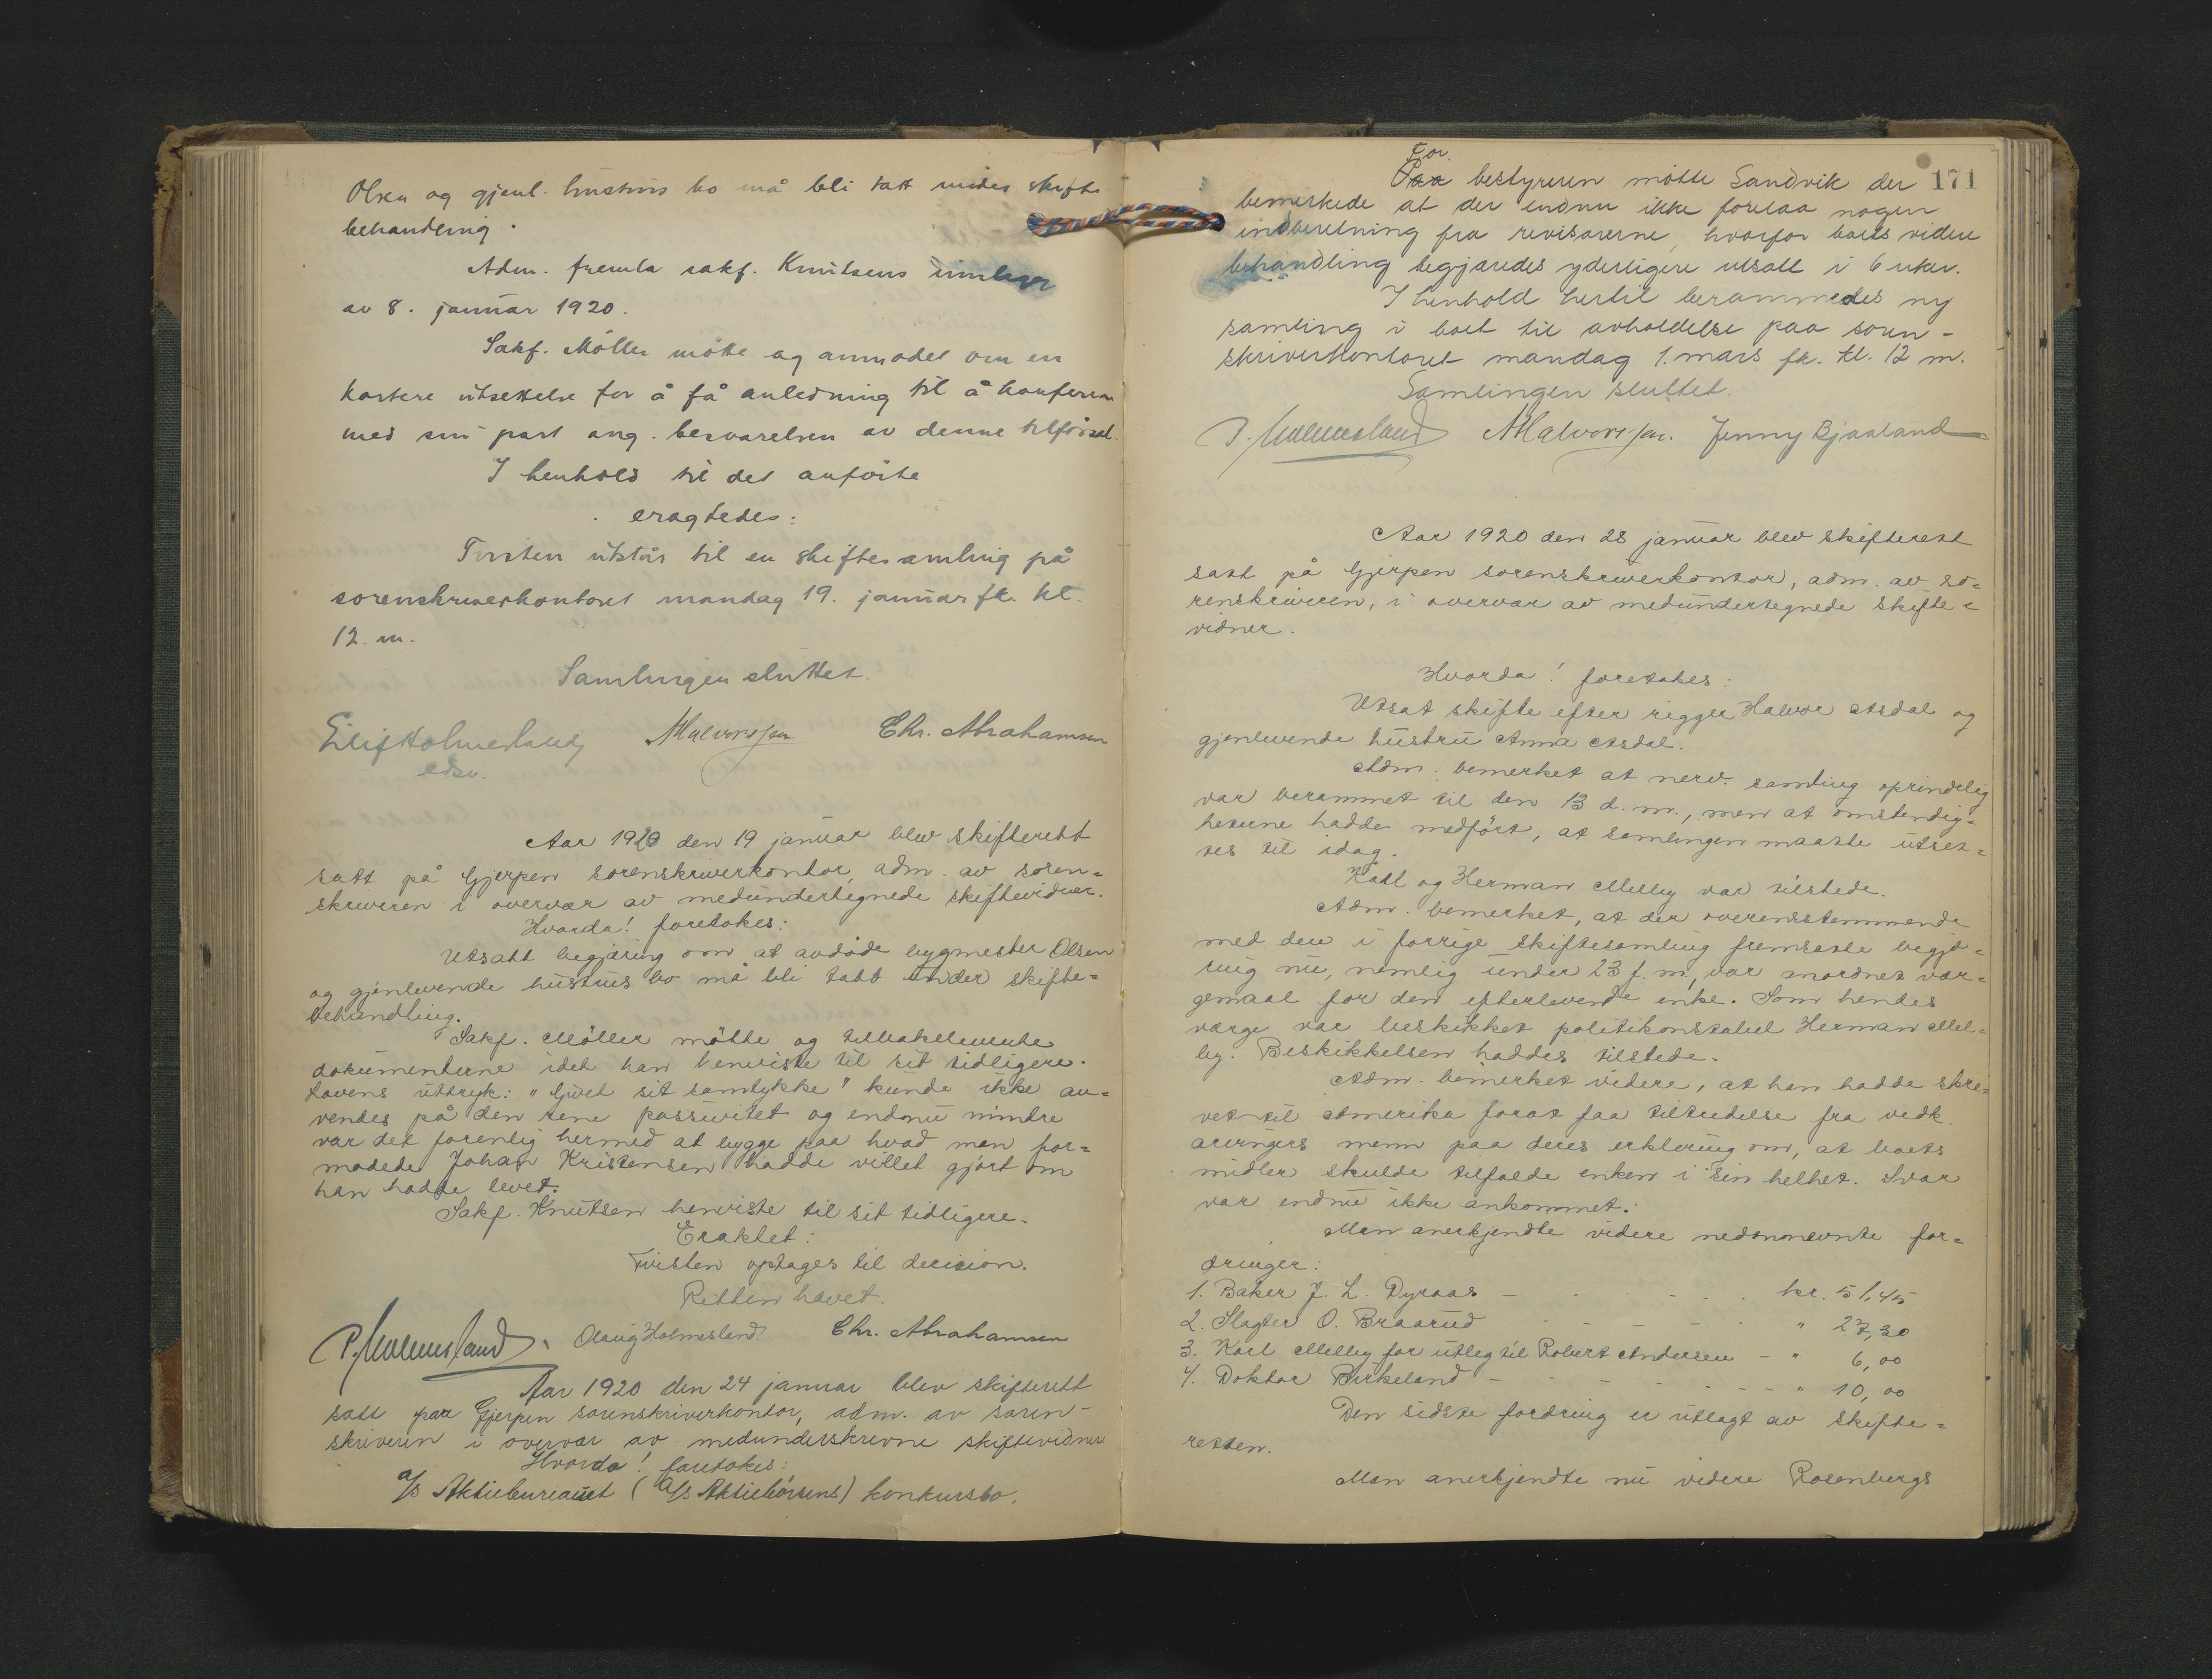 Olsen og gjenl. hustrus bo må bli tatt under skifte
behandling.
Adm. fremla sakf. Knutsens innlegg
av 8. januar 1920.
Sakf. Möller møtte og anmodet om en
kortere utsettelse for å få anledning til å konferere
med sin part ang. besvarelsen av denne tilförsel.
I henhold til det anförte
eragtedes:
Tvisten utstår til en skiftesamling på
sorenskriverkontoret mandag 19. januar fk. kl.
12. m.
Samlingen sluttet.
Eilif Holmesland
edsv.
AHalvorsen
Chr. Abrahamsen
Aar 1920 den 19 januar blev skifterett
satt på Gjerpen sorenskriverkontor, adm. av soren=
skriveren i overvær av medundertegnede skiftevidner.
Hvorda! foretokes:
Utsatt begjæring om at avdøde bygmester Olsen
og gjenlevende hustrus bo må bli tatt under skifte=
behandling.
Sakf. Möller møtte og tilbakeleverte
dokumenterne idet han henviste til sit tidligere.
Lovens uttryk: "Givet sit samtykke" kunde ikke an=
vendes på den rene passivitet og endnu mindre
var det forenlig hermed at bygge paa hvad man for=
modede Johan Kristensen hadde villet gjort om
han hadde levet.
Sakf. Knutsen henviste til sit tidligere.
Eraktet:
Tvisten optages til decision.
Retten hævet.
P. Holmesland. Olaug Holmesland. Chr. Abrahamsen
Aar 1920 den 24 januar blev skifterett
satt paa Gjerpen sorenskriverkontor, adm. av soren-
skriveren i overvær av medunderskrevne skiftevidner
Hvorda! foretokes:
A/S Aktiebureauet (A/S Aktiebörsens) konkursbo.
171
For
Paa bestyreren møtte Sandvik der
bemerkede at der endnu ikke forelaa nogen
indberetning fra revisorerne, hvorfor boets videre
behandling begjæredes yderligere utsatt i 6 uker.
I henhold hertil berammedes ny
samling i boet til avholdelse paa soren-
skriverkontoret mandag 1. mars fk. kl. 12 m.
Samlingen sluttet.
P. Holmesland AHalvorsen. Jenny Bjaaland
Aar 1920 den 28 januar blev skifterett
satt på Gjerpen sorenskriverkontor, adm. av so=
renskriveren, i overvær av medundertegnede skifte=
vidner.
Hvorda! foretokes:
Utsat skifte efter rigger Halvor Aasdal og
gjenlevende hustru Anna Aasdal.
Adm. bemerket at nerv. samling oprindelig
var berammet til den 13 d. m., men at omstendig=
heterne hadde medført, at samlingen maatte utset=
tes til idag.
Karl og Herman Melleby var tilstede.
Adm. bemerket, at der overensstemmende
med den i forrige skiftesamling fremsatte begjæ=
ring nu, nemlig under 23 f. m., var anordnet vær=
gemaal for den efterlevende enke. Som hendes
værge var beskikket politikonstabel Herman Mel=
by. Beskikkelsen haddes tilstede.
Adm. bemerket videre, at han hadde skre=
vet til Amerika forat faa tiltredelse fra vedk.
arvingers menn paa deres erklæring om, at boets
midler skulde tilfalde enken i sin helhet. Svar
var endnu ikke ankommet.
Man anerkjendte videre nedennevnte for=
dringer:
1. Baker J. L. Dyraas - - - - kr. 51,45
2. Slagter O. Braarud - - - - " 27,30
3. Karl Melleby for utleg til Robert Andersen - " 6,00
4. Doktor Birkeland - - - - - " 10,00
Den sidste fordring er utlagt av skifte=
retten.
Man anerkjendte nu videre Rosenbergs